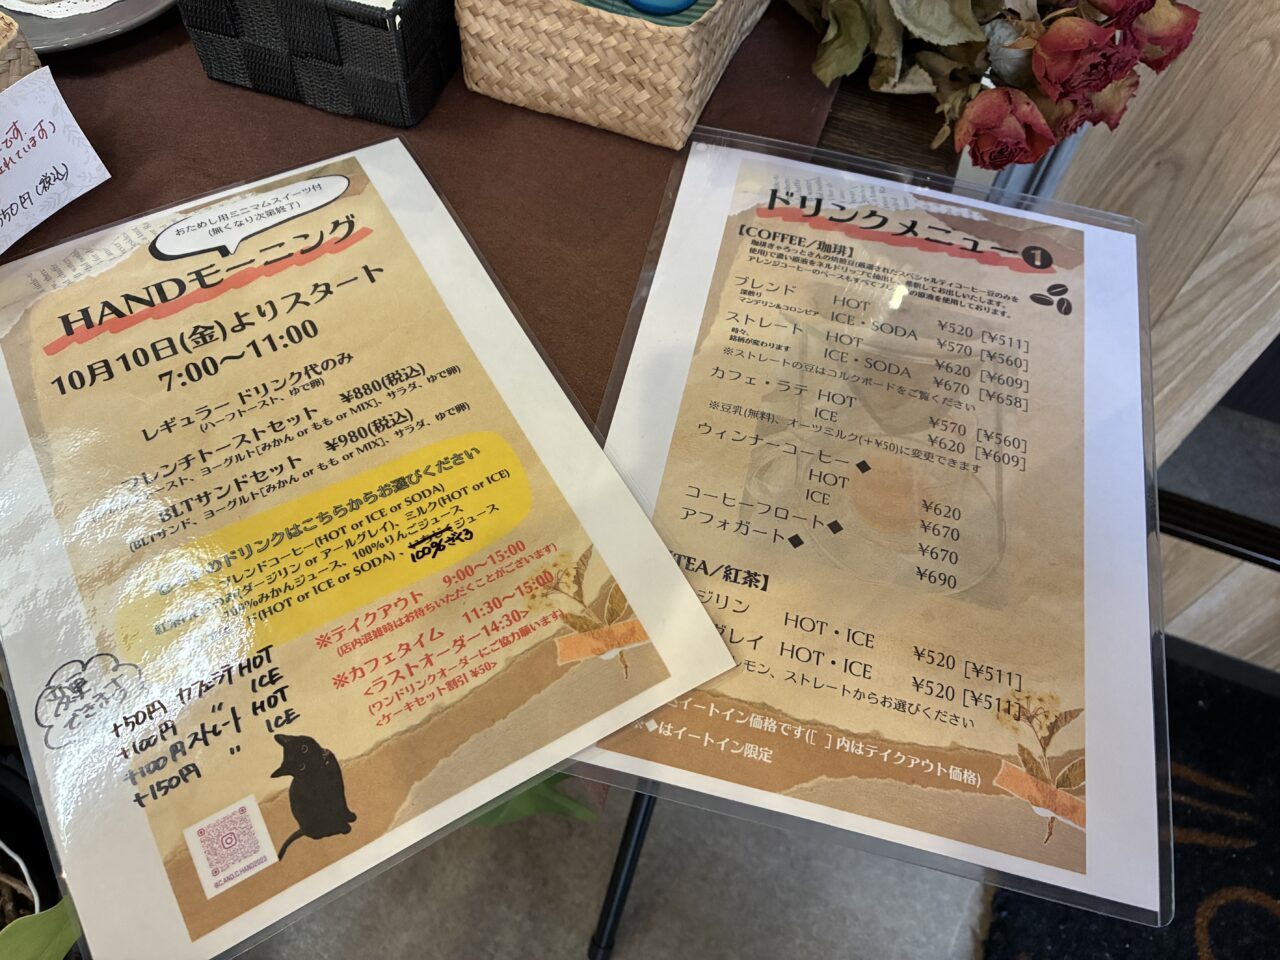 です。
れています)
50円(税込)
おためし用ミニマムスイーツ付
(無くなり次第終了)
HANDモーニング
10月10日(金)よりスタート
7:00〜11:00
レギュラー ドリンク代のみ
(ハーフトースト、ゆで卵)
フレンチトーストセット ¥880(税込)
トースト、ヨーグルト[みかん or もも or MIX]、サラダ、ゆで卵)
BLTサンドセット ¥980(税込)
(BLTサンド、ヨーグルト[みかん or もも or MIX]、サラダ、ゆで卵)
のドリンクはこちらからお選びください
ブレンドコーヒー(HOT or ICE or SODA)
紅茶(ダージリン or アールグレイ)、ミルク(HOT or ICE)
100%みかんジュース、100%りんごジュース
ド(HOT or ICE or SODA)、ジュース
※テイクアウト 9:00〜15:00
(店内混雑時はお待ちいただくことがございます)
※カフェタイム 11:30〜15:00
<ラストオーダー14:30>
(ワンドリンクオーダーにご協力願います)
<ケーキセット割引 ¥50>
変更できます
+50円 カフェラテ HOT
+100円 〃 ICE
+100円 ストレート HOT
+150円 〃 ICE
@C.AND.C.HAND2023
ドリンクメニュー1
【COFFEE/珈琲】
珈琲きゃろっとさんの焙煎豆(厳選されたスペシャルティコーヒー豆のみを
使用)で濃い原液をネルドリップで抽出し、希釈してお出しいたします。
アレンジコーヒーのベースもすべての原液を使用しております。
ブレンド HOT ¥520 [¥511]
深煎り
マンデリン&コロンビア ICE・SODA ¥570 [¥560]
ストレート HOT ¥620 [¥609]
時々、
銘柄が変わります ICE・SODA ¥670 [¥658]
※ストレートの豆はコルクボードをご覧ください
カフェ・ラテ HOT ¥570 [¥560]
ICE ¥620 [¥609]
※豆乳(無料)、オーツミルク(+¥50)に変更できます
ウィンナーコーヒー◆
HOT ¥620
ICE ¥670
コーヒーフロート◆ ¥670
アフォガート◆ ¥690
TEA/紅茶】
ジリン HOT・ICE ¥520 [¥511]
グレイ HOT・ICE ¥520 [¥511]
モン、ストレートからお選びください
イートイン価格です([ ]内はテイクアウト価格)
※◆はイートイン限定